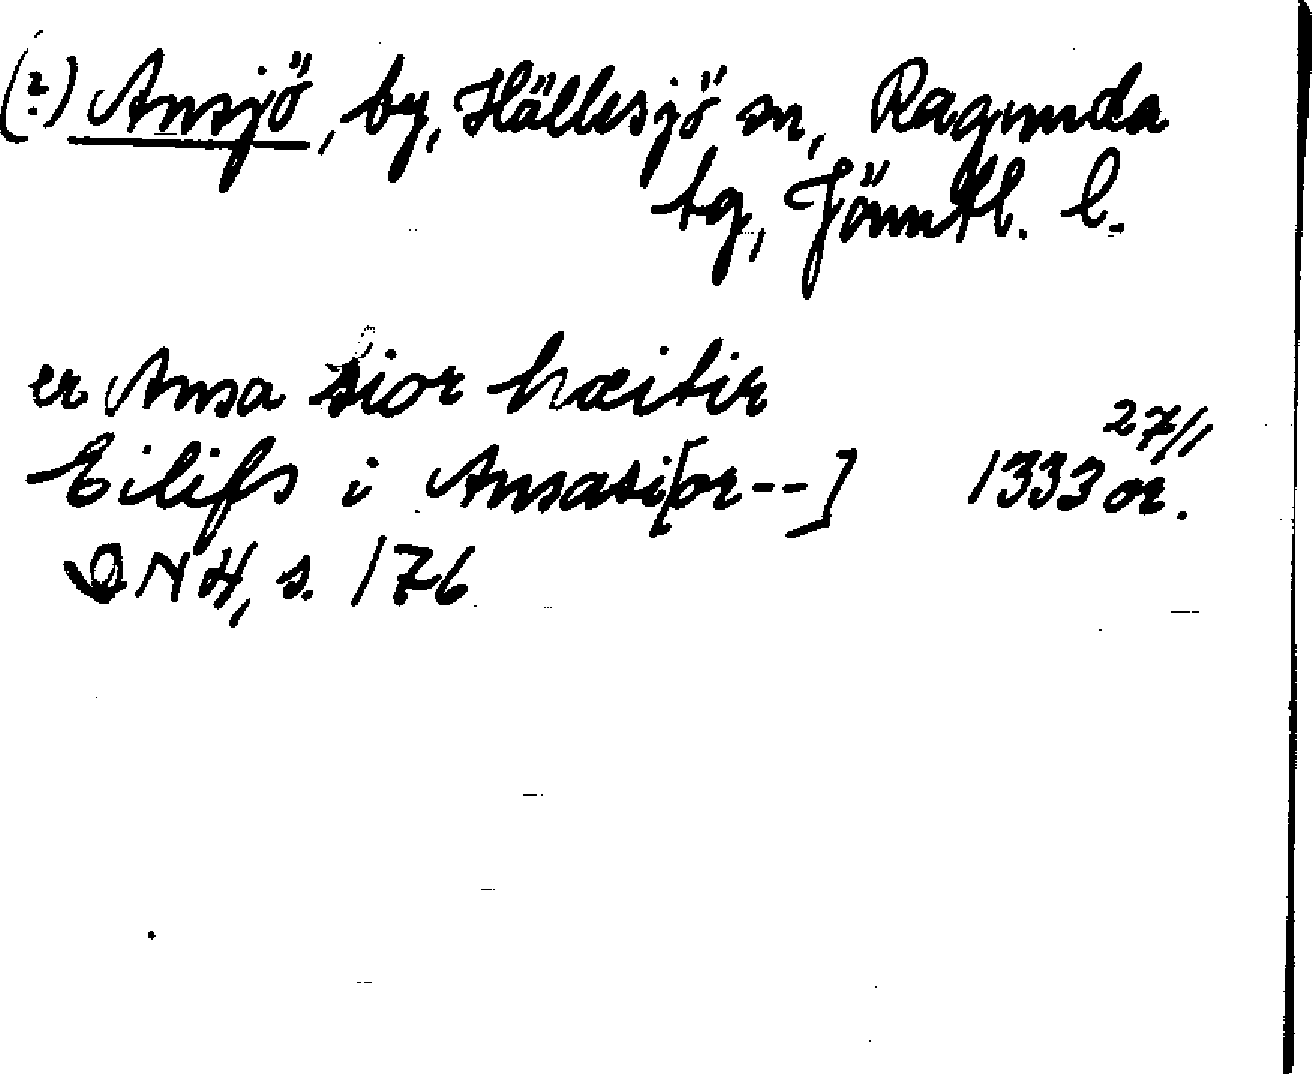 (?) Ansjö, by, Hällesjö sn, Ragunda
tg, Jämtl. l.
er Ansa sior hæitir
Eilifs i Ansasi[or--] 1333 27/1 or.
DNH, s. 176